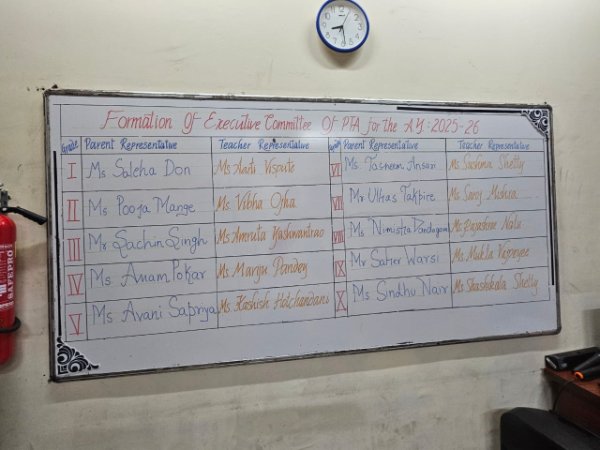 Formation Of Executive Committee Of PTA for the AY: 2025-26
Grade Parent Representative Teacher Representative Grade Parent Representative Teacher Representative
I Ms Saleha Don Ms Aarti Vispute VI Ms. Tasneem Ansari Ms Sushma Shetty
II Ms Pooja Mange Ms. Vibha Ojha VII Mr Ulhas Takpire Ms Saroj Mishra
III Mr Sachin Singh Ms Amruta Yashwantrao VIII Ms Nimisha Ms Rajashree
IV Ms Anam Pokar Ms Manju Pandey IX Mr Saher Warsi Ms Mukta Vajpeyee
V Ms Avani Sapriya Ms Kashish Hotchandani X Ms Sindhu Nair Ms Shashikala Shetty
SAFEPRO